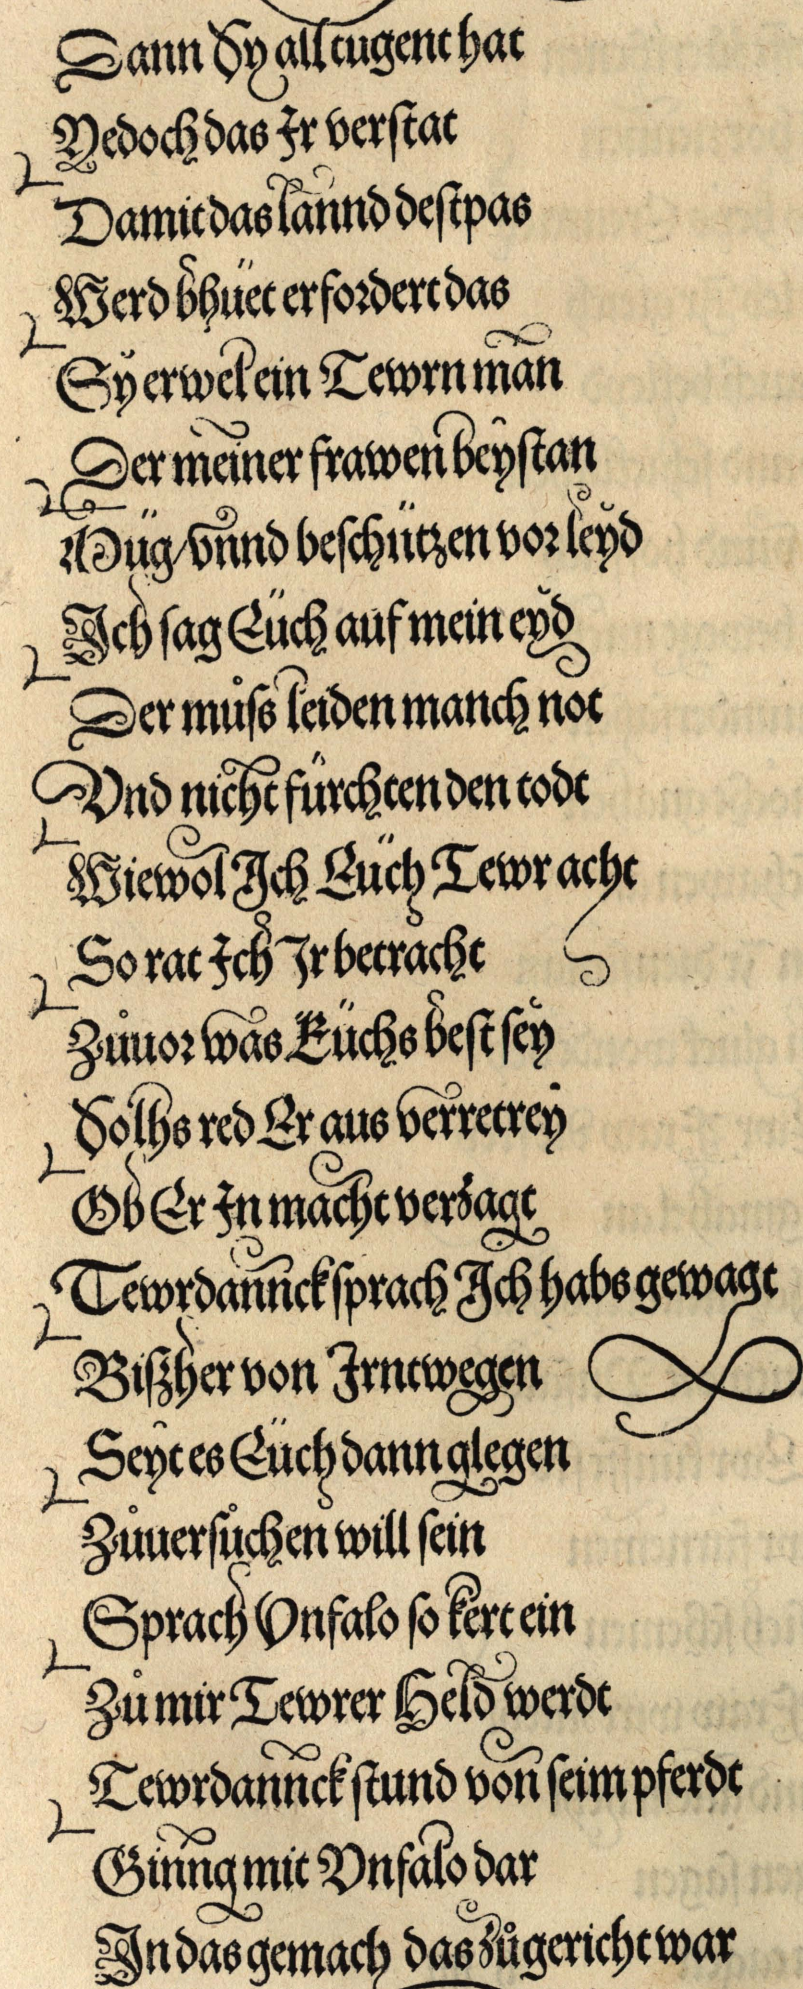 Dann Sy all tugent hat
Yedoch das Jr verstat
Damit das lannd destpas
Werd bhüet erfordert das
Sÿ erwel ein Tewrn man
Der meiner frawen beÿstan
Müg / vnnd beschützen vor leÿd
Ich sag Eüch auf mein eÿd
Der můſs leiden manch not
Vnd nicht fürchten den todt
Wiewol Ich Eüch Tewr acht
So rat Ich Ir betracht
Zůuor was Eüchs best seÿ
Solhs red Er aus verretreÿ
Ob Er In macht verzagt
Tewrdannck sprach Ich habs gewagt
Biſzher von Irntwegen
Seÿt es Eüch dann glegen
Zůuersůchen will sein
Sprach Vnfalo so kert ein
Zů mir Tewrer Held werdt
Tewrdannck stund von seim pferdt
Ginng mit Vnfalo dar
In das gemach das zůgericht war